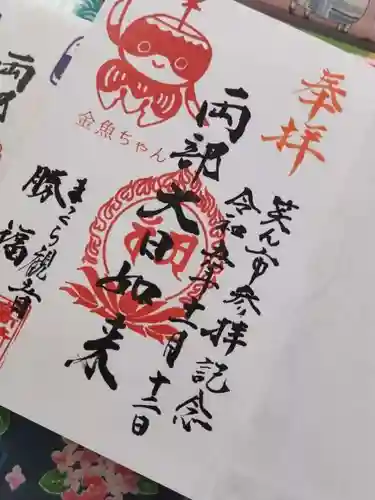 奉拝
笑ん市参拝記念
令和五年十一月十二日
両部
大日如来
金魚ちゃん
まくら観音
勝福
両部